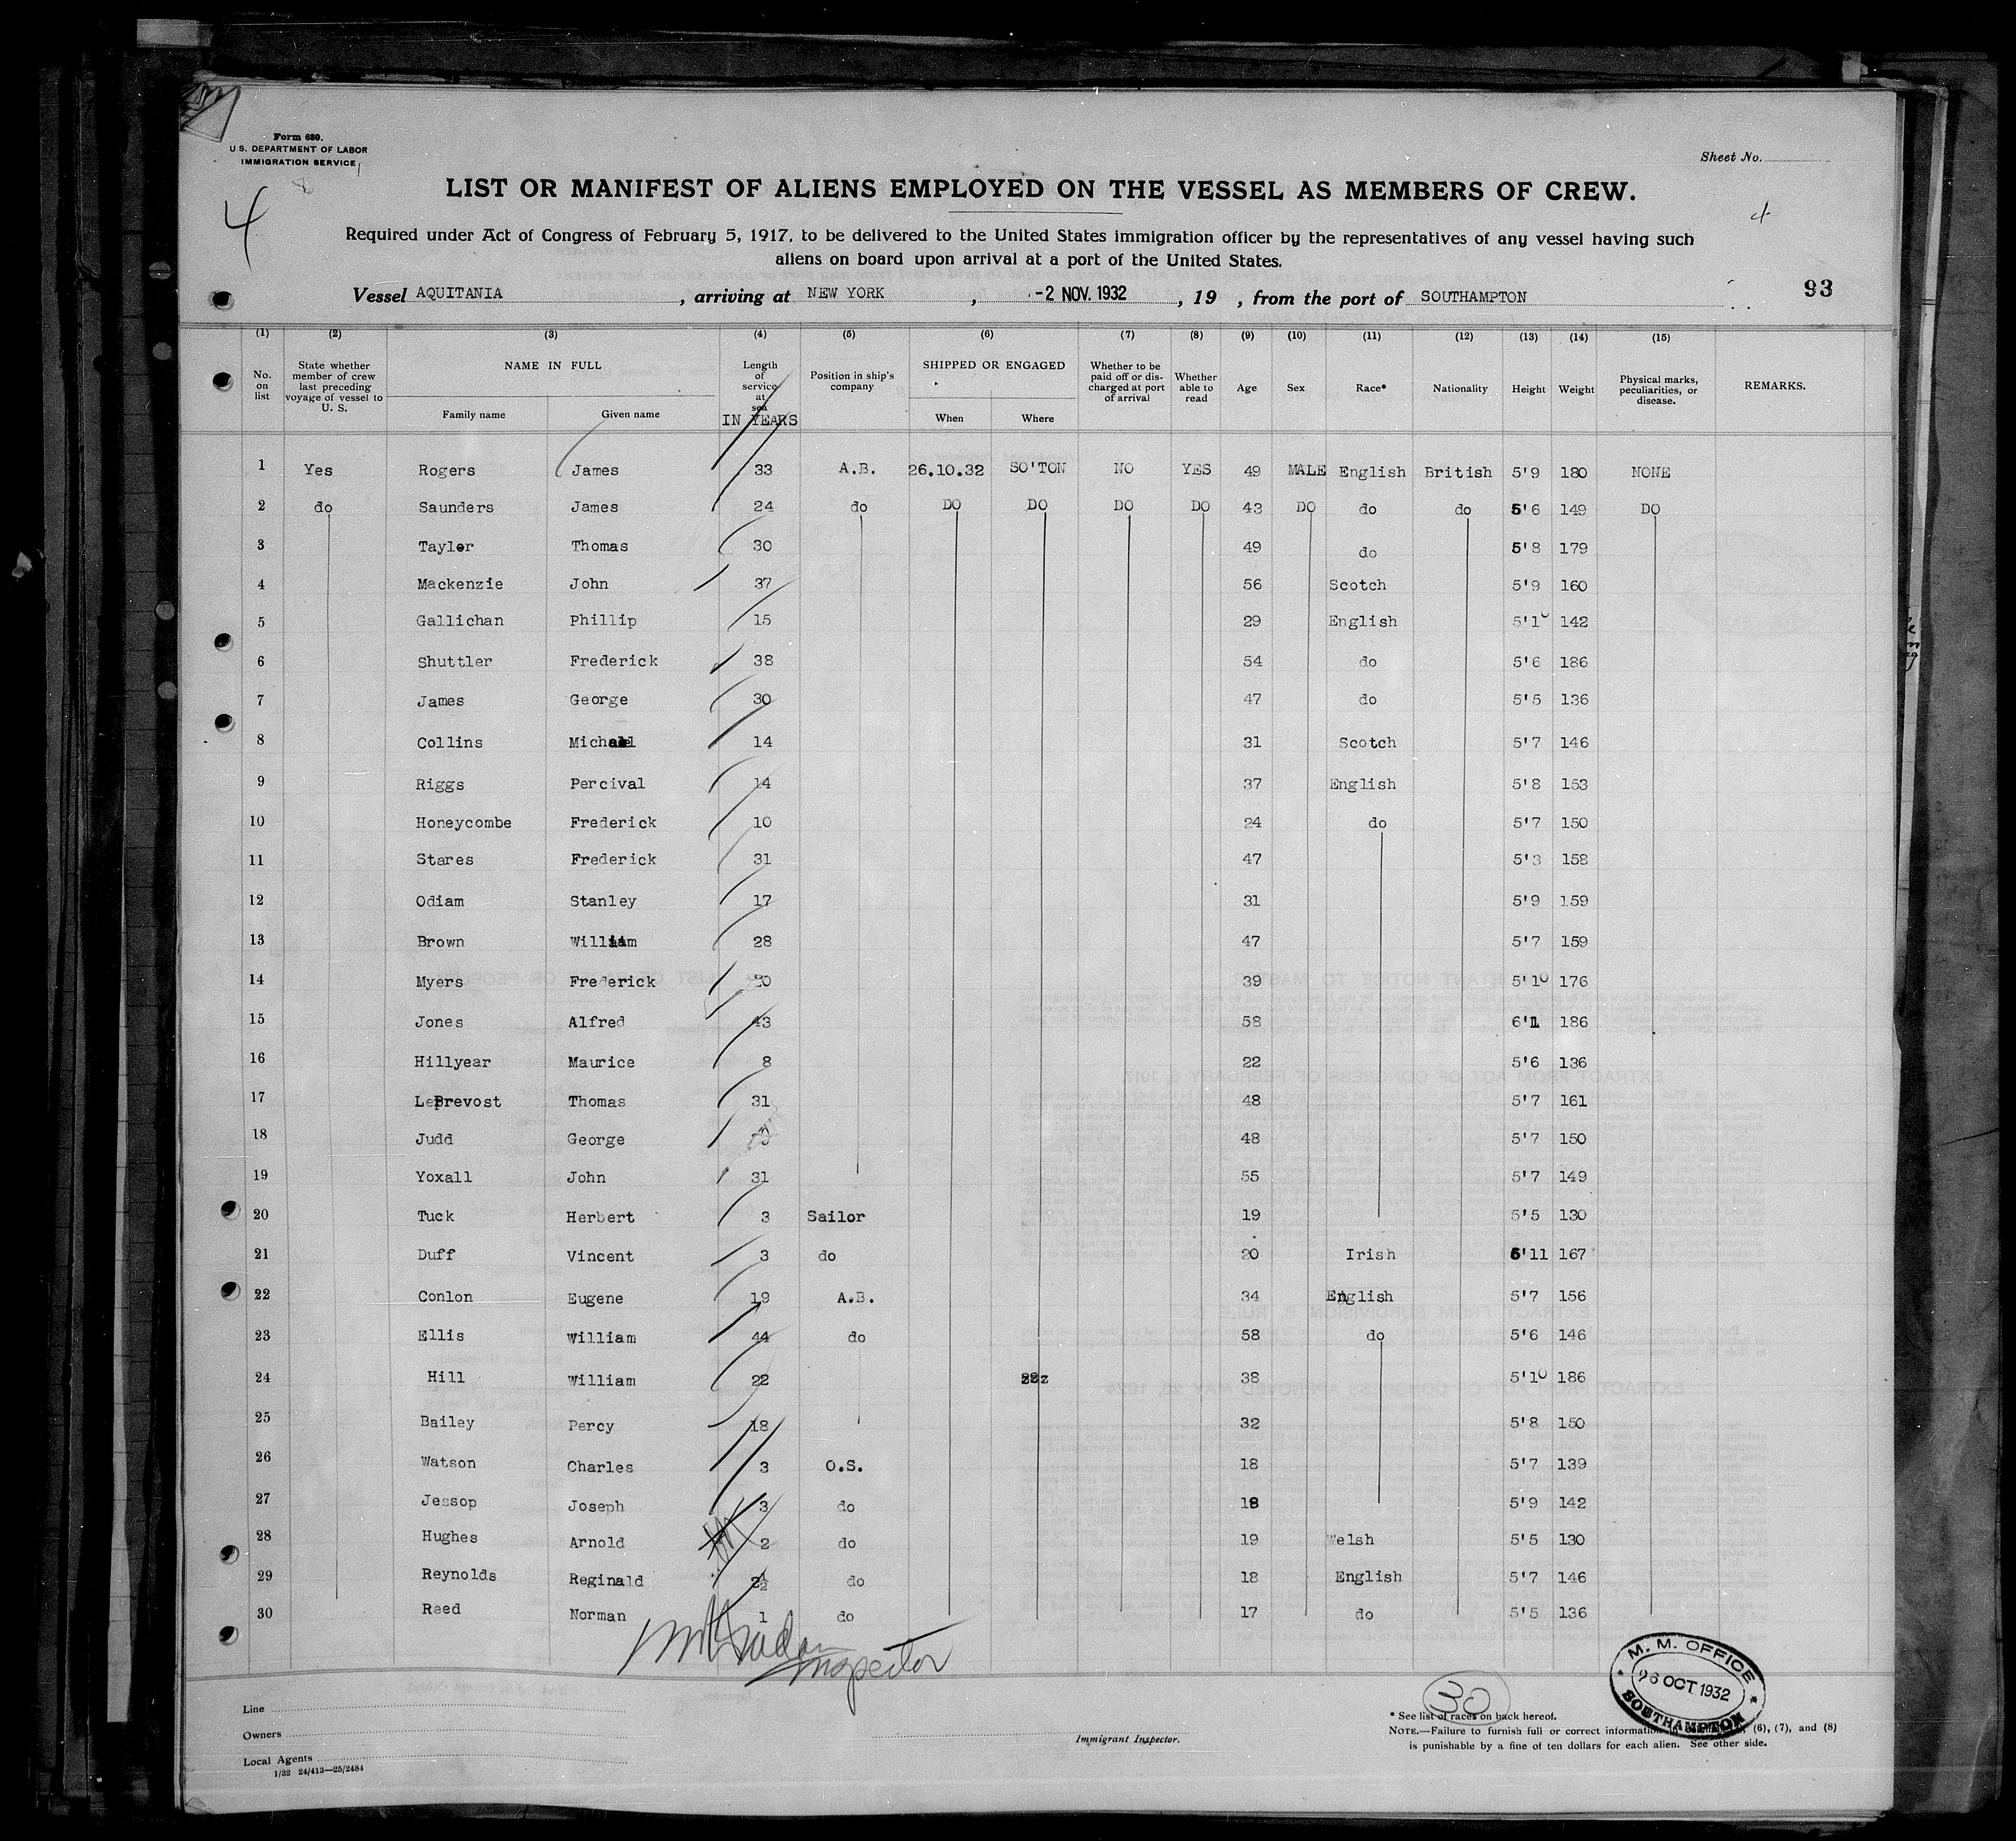 Form 680.
U.S. DEPARTMENT OF LABOR
IMMIGRATION SERVICE
Sheet No.
4
LIST OR MANIFEST OF ALIENS EMPLOYED ON THE VESSEL AS MEMBERS OF CREW.
4
Required under Act of Congress of February 5, 1917, to be delivered to the United States immigration officer by the representatives of any vessel having such
aliens on board upon arrival at a port of the United States.
Vessel AQUITANIA, arriving at NEW YORK, -2 NOV. 1932, 19 , from the port of SOUTHAMPTON
93
(1) (2) (3) (4) (5) (6) (7) (8) (9) (10) (11) (12) (13) (14) (15)
No. on list State whether member of crew last preceding voyage of vessel to U. S. NAME IN FULL Family name Given name Length of service at sea IN YEARS Position in ship's company SHIPPED OR ENGAGED When Where Whether to be paid off or discharged at port of arrival Whether able to read Age Sex Race* Nationality Height Weight Physical marks, peculiarities, or disease. REMARKS.
1 Yes Rogers James 33 A.B. 26.10.32 SO'TON NO YES 49 MALE English British 5'9 180 NONE
2 do Saunders James 24 do DO DO DO DO 43 DO do do 5'6 149 DO
3 Tayler Thomas 30 49 do 5'8 179
4 Mackenzie John 37 56 Scotch 5'9 160
5 Gallichan Phillip 15 29 English 5'10 142
6 Shuttler Frederick 38 54 do 5'6 186
7 James George 30 47 do 5'5 136
8 Collins Michael 14 31 Scotch 5'7 146
9 Riggs Percival 14 37 English 5'8 153
10 Honeycombe Frederick 10 24 do 5'7 150
11 Stares Frederick 31 47 5'3 158
12 Odiam Stanley 17 31 5'9 159
13 Brown William 28 47 5'7 159
14 Myers Frederick 20 39 5'10 176
15 Jones Alfred 43 58 6'1 186
16 Hillyear Maurice 8 22 5'6 136
17 LePrevost Thomas 31 48 5'7 161
18 Judd George 48 5'7 150
19 Yoxall John 31 55 5'7 149
20 Tuck Herbert 3 Sailor 19 5'5 130
21 Duff Vincent 3 do 20 Irish 5'11 167
22 Conlon Eugene 19 A.B. 34 English 5'7 156
23 Ellis William 44 do 58 do 5'6 146
24 Hill William 22 38 5'10 186
25 Bailey Percy 18 32 5'8 150
26 Watson Charles 3 O.S. 18 5'7 139
27 Jessop Joseph 3 do 18 5'9 142
28 Hughes Arnold 2 do 19 Welsh 5'5 130
29 Reynolds Reginald 2½ do 18 English 5'7 146
30 Reed Norman 1 do 17 do 5'5 136
Inspector
M. M. OFFICE
26 OCT 1932
SOUTHAMPTON
30
Line
Owners
Local Agents
1/32 24/413—25/2484
Immigrant Inspector.
* See list of races on back hereof.
NOTE.—Failure to furnish full or correct information (6), (7), and (8)
is punishable by a fine of ten dollars for each alien. See other side.